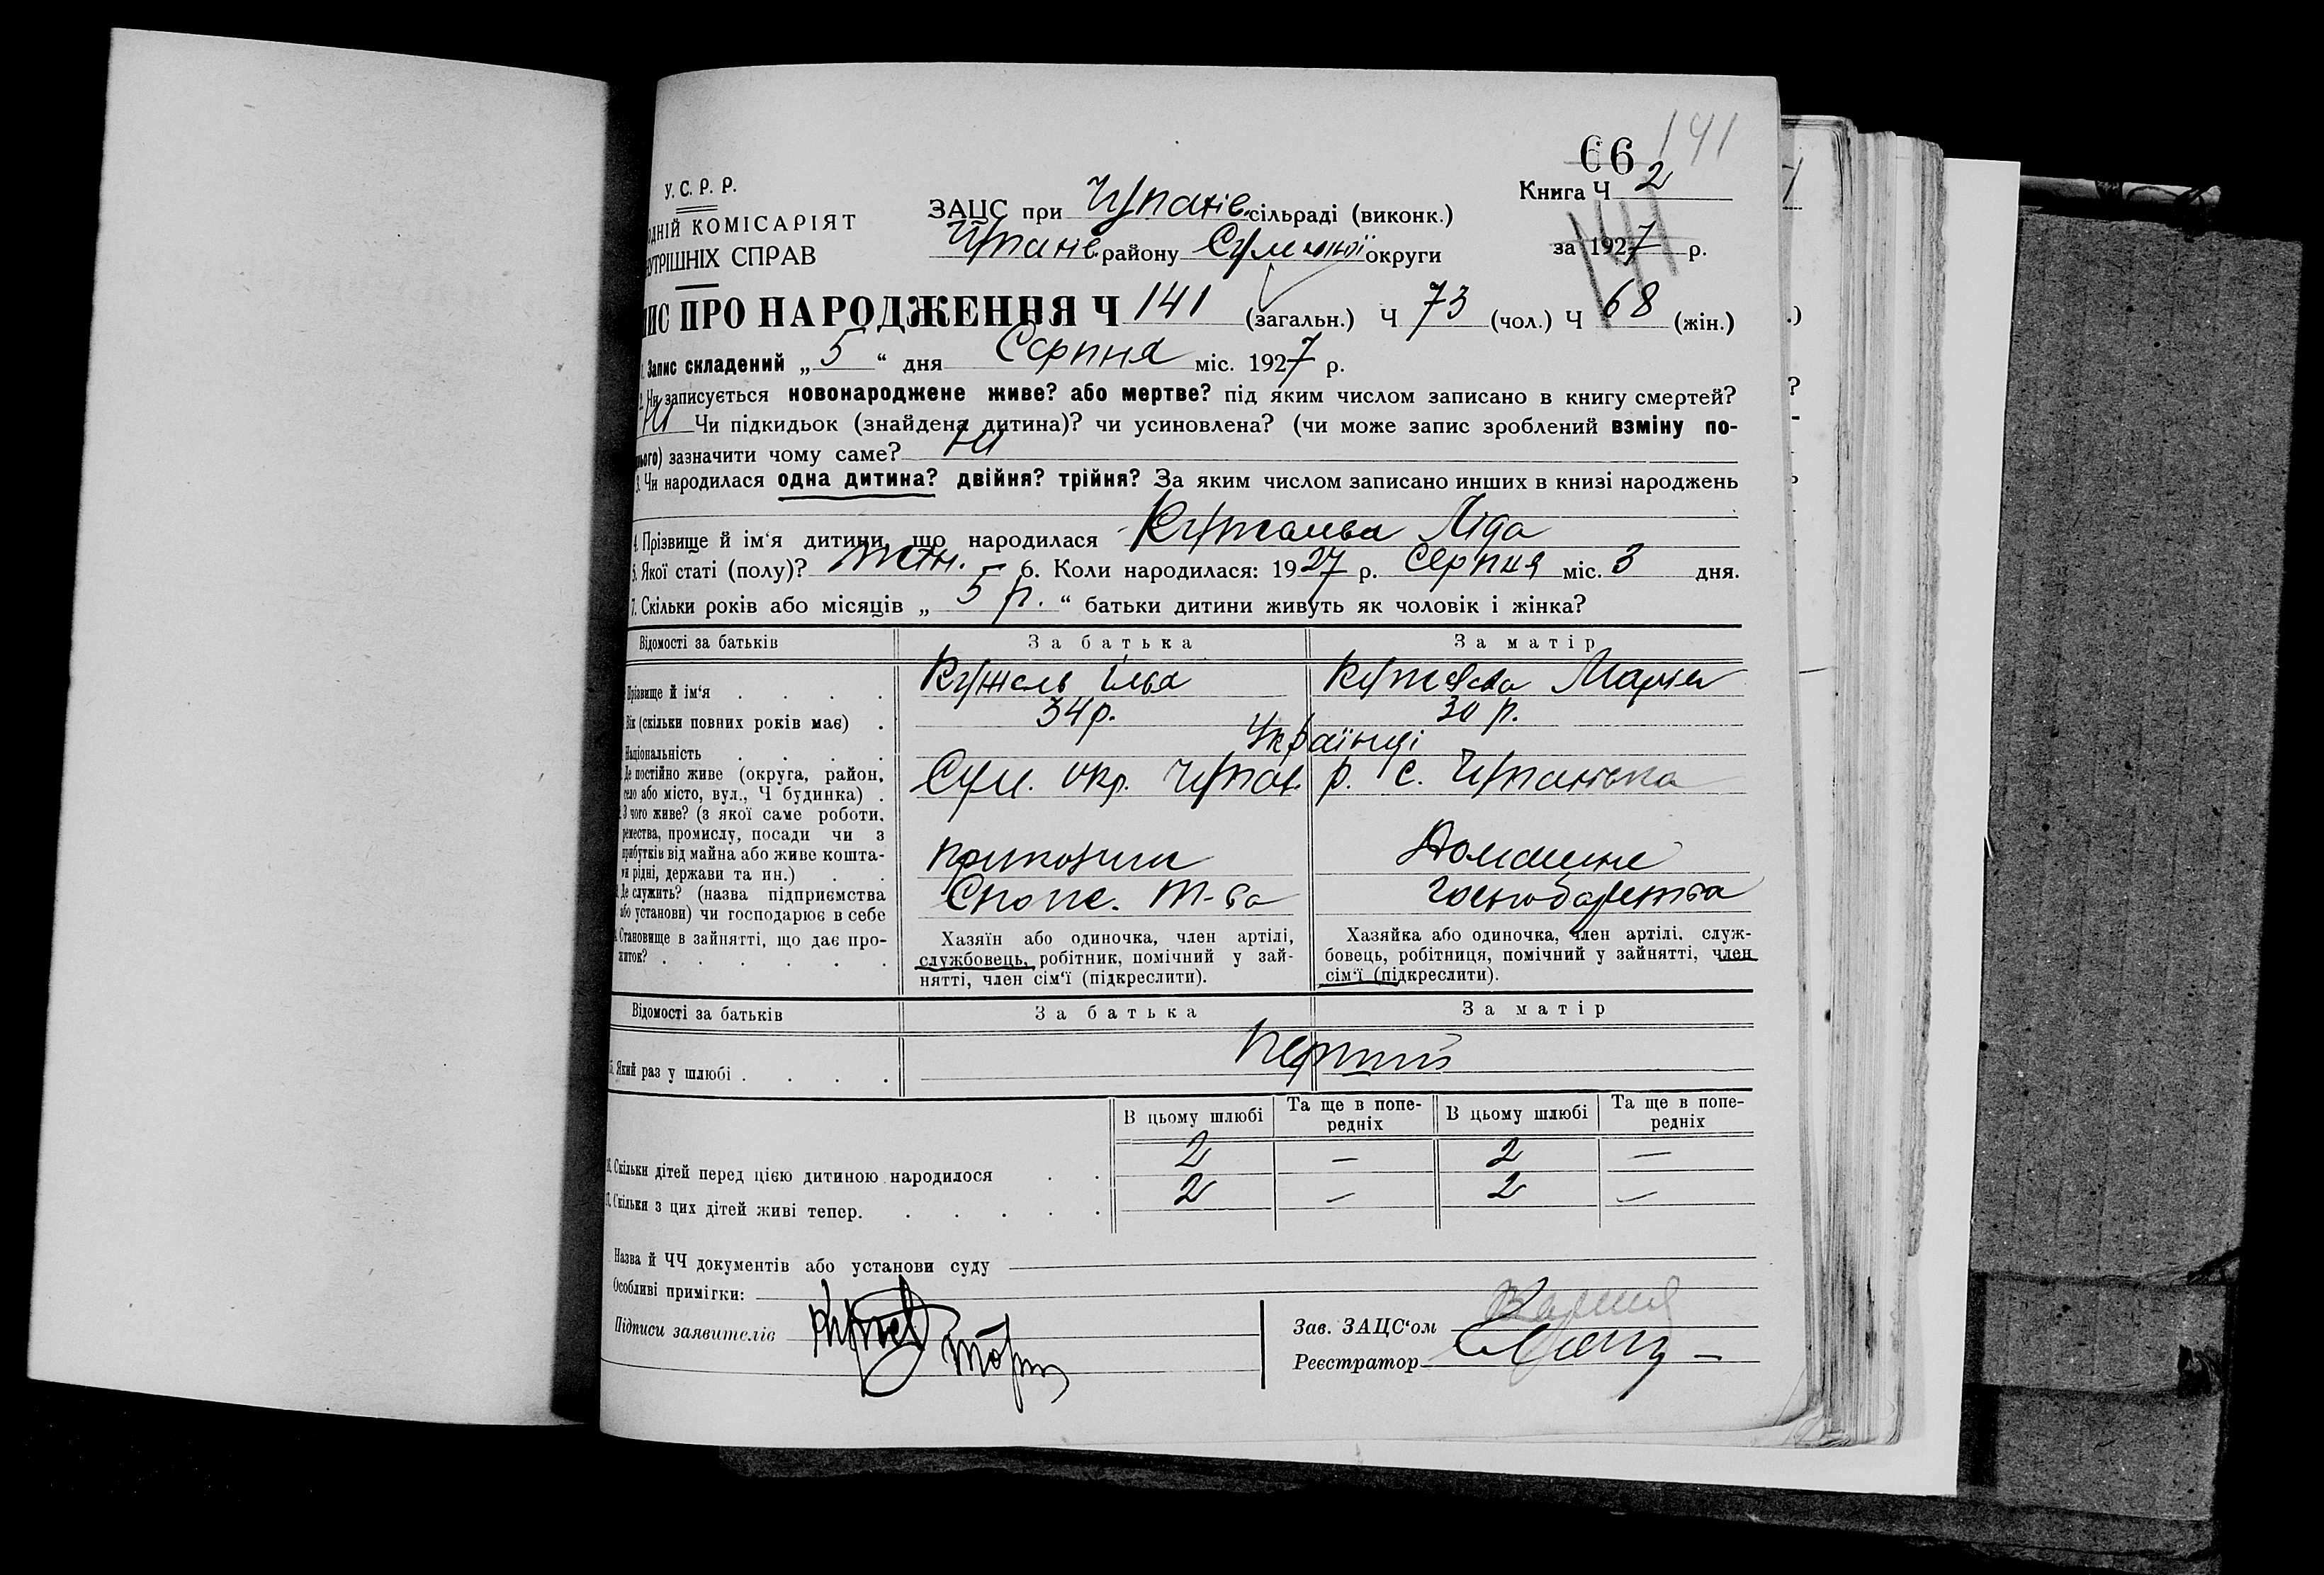 66 141
У. С. Р. Р.
Книга Ч 2
ЗАЦС при Чупахів. сільраді (виконк.)
ОДНІЙ КОМІСАРІЯТ
Чупахів. району Сумської округи
за 1927 р.
141
УТРІШНІХ СПРАВ
ИС ПРО НАРОДЖЕННЯ Ч 141 (загальн.) Ч 73 (чол.) Ч 68 (жін.)
1. Запис складений „ 5 “ дня Серпня міс. 1927 р.
2. Чи записується новонароджене живе? або мертве? під яким числом записано в книгу смертей?
Ні Чи підкидьок (знайдена дитина)? чи усиновлена? (чи може запис зроблений взміну по-
нього) зазначити чому саме? Ні
3. Чи народилася одна дитина? двійня? трійня? За яким числом записано инших в книзі народжень
4. Прізвище й ім‘я дитини, що народилася Ліда
5. Якої статі (полу)? жін. 6. Коли народилася: 1927 р. Серпня міс. 3 дня.
7. Скільки років або місяців „ 5 р. “ батьки дитини живуть як чоловік і жінка?
Відомості за батьків За батька За матір
Прізвище й ім‘я . . . . Кужель Ілья Марія
Вік (скільки повних років має) . 34 р. 30 р.
Національність . . . . Українці
Де постійно живе (округа, район, Сум. окр. Чупах. р. с. Чупахівка
село або місто, вул., Ч будинка) .
З чого живе? (з якої саме роботи,
ремества, промислу, посади чи з
прибутків від майна або живе кошта- Домашнє
ми рідні, держави та ин.) . .
Де служить? (назва підприємства Спож. т-ва господарства
або установи) чи господарює в себе
Становище в зайнятті, що дає про- Хазяїн або одиночка, член артілі, Хазяйка або одиночка, член артілі, служ-
житок? . . . . . . службовець, робітник, помічний у зай- бовець, робітниця, помічний у зайнятті, член
нятті, член сім‘ї (підкреслити). сім‘ї (підкреслити).
Відомості за батьків За батька За матір
15. Який раз у шлюбі . . . . Перший
В цьому шлюбі Та ще в попе- В цьому шлюбі Та ще в попе-
редніх редніх
16. Скільки дітей перед цією дитиною народилося . . 2 — 2 —
17. Скільки з цих дітей живі тепер. . . . . . 2 — 2 —
Назва й ЧЧ документів або установи суду
Особливі примігки:
Підписи заявителів
Зав. ЗАЦС‘ом
Реєстратор